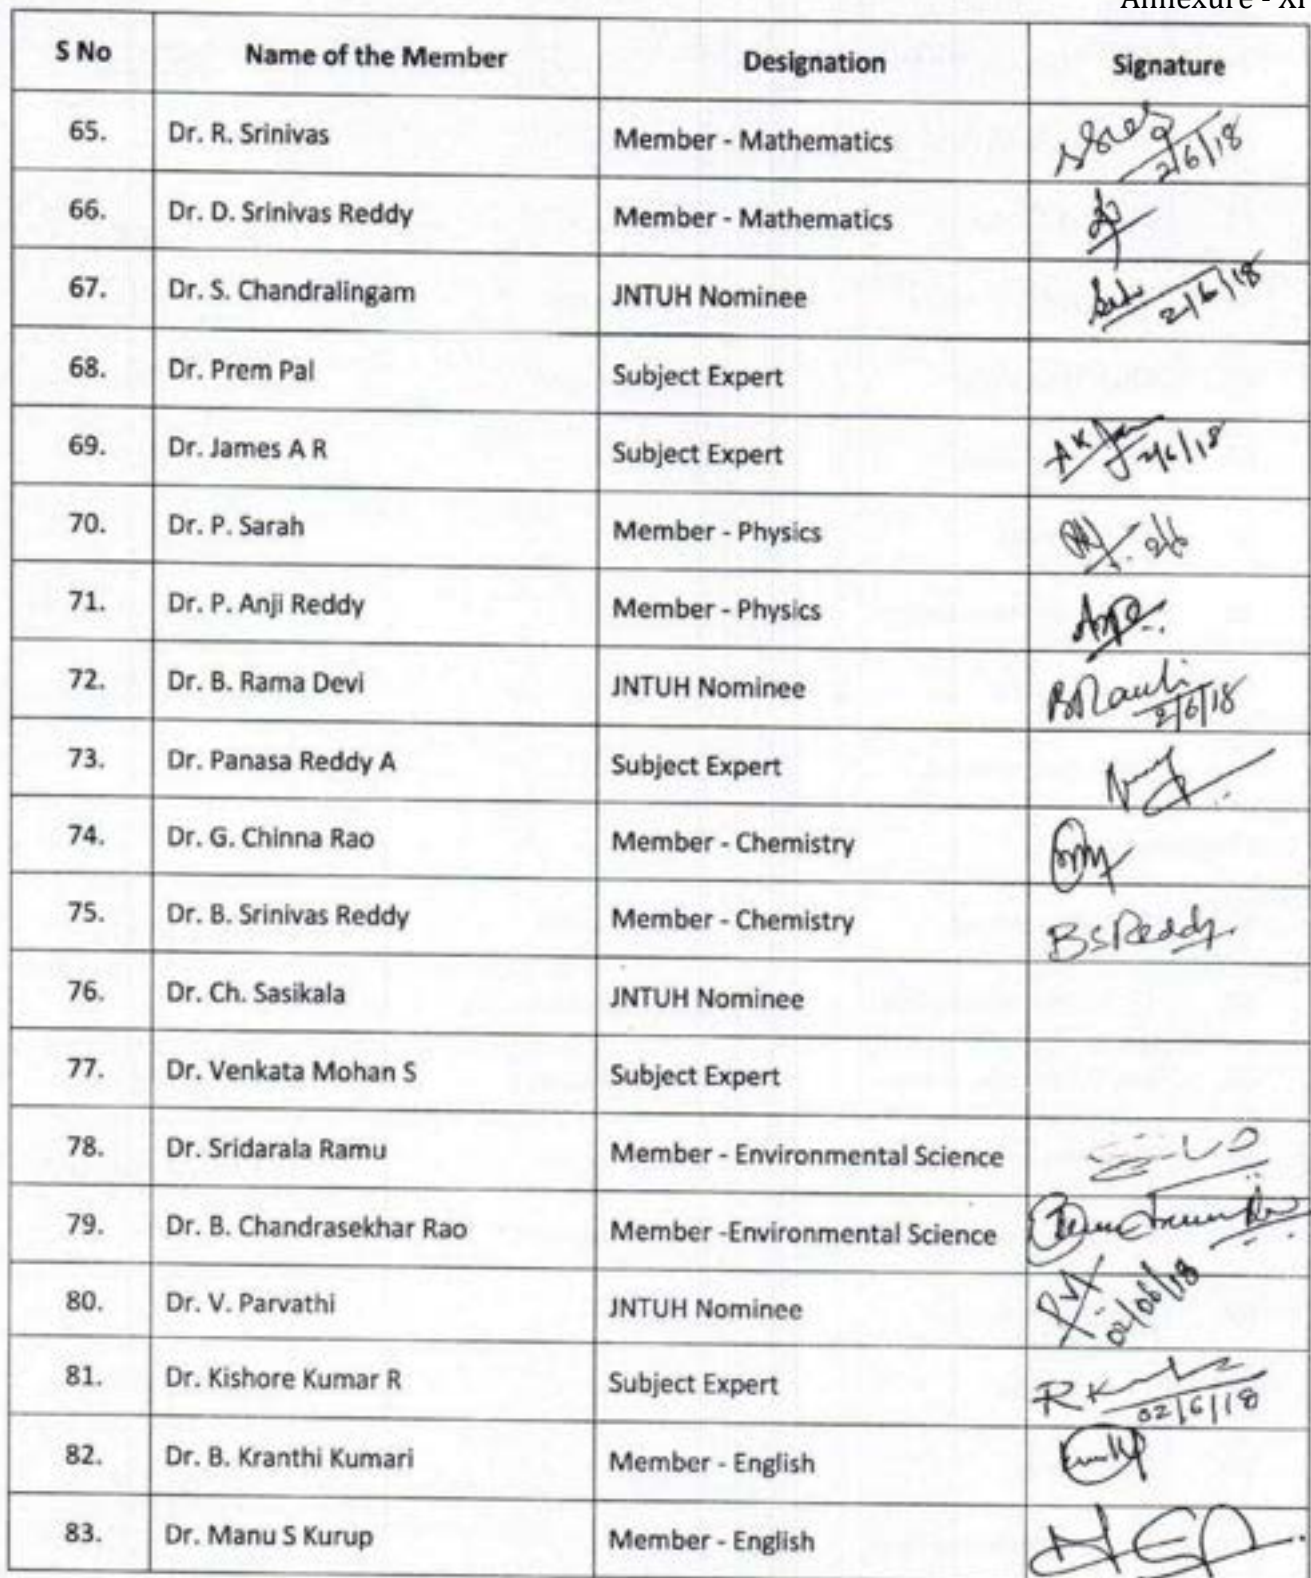 Annexure - XI
S No Name of the Member Designation Signature
65. Dr. R. Srinivas Member - Mathematics 2/6/18
66. Dr. D. Srinivas Reddy Member - Mathematics
67. Dr. S. Chandralingam JNTUH Nominee 2/6/18
68. Dr. Prem Pal Subject Expert
69. Dr. James A R Subject Expert 2/6/18
70. Dr. P. Sarah Member - Physics 2/6
71. Dr. P. Anji Reddy Member - Physics
72. Dr. B. Rama Devi JNTUH Nominee 2/6/18
73. Dr. Panasa Reddy A Subject Expert
74. Dr. G. Chinna Rao Member - Chemistry
75. Dr. B. Srinivas Reddy Member - Chemistry BSReddy
76. Dr. Ch. Sasikala JNTUH Nominee
77. Dr. Venkata Mohan S Subject Expert
78. Dr. Sridarala Ramu Member - Environmental Science
79. Dr. B. Chandrasekhar Rao Member -Environmental Science
80. Dr. V. Parvathi JNTUH Nominee 02/06/18
81. Dr. Kishore Kumar R Subject Expert 02/6/18
82. Dr. B. Kranthi Kumari Member - English
83. Dr. Manu S Kurup Member - English